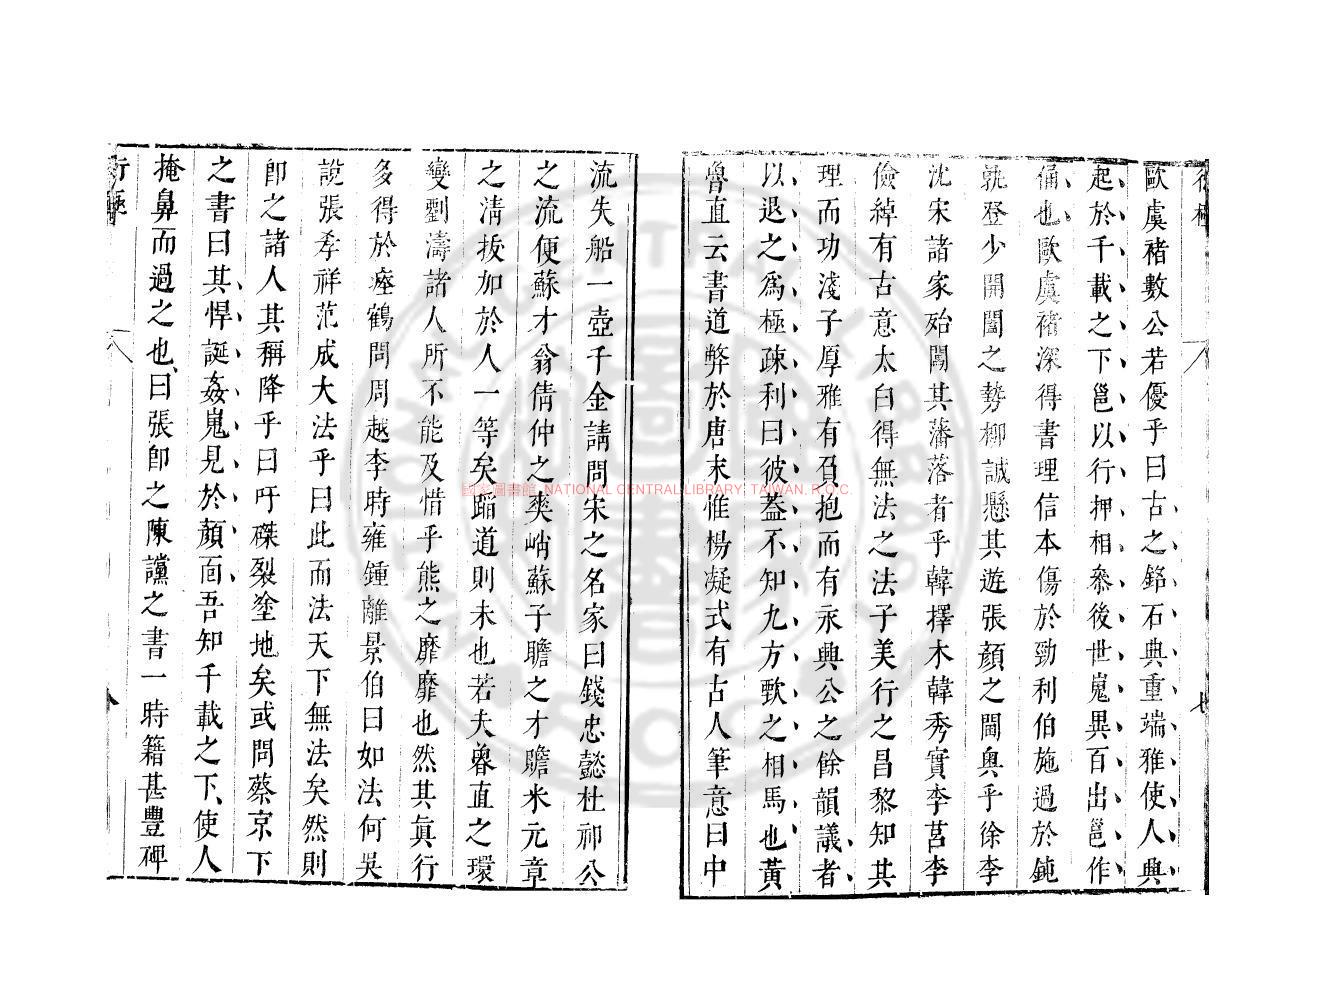 歐虞褚數公若優乎曰古之銘石典重端雅使人興
起於千載之下邕以行押相叅後世嵬異百出邕作
俑也歐虞褚深得書理信本傷於勁利伯施過於鈍
孰登少開闔之勢柳誠懸其遊張顏之閫奥乎徐李
沈宋諸家殆闖其藩落者乎韓擇木韓秀實李莒李
儉綽有古意太白得無法之法子美行之昌黎知其
理而功淺子厚雅有召抱而有永興公之餘韻議者
以退之爲極疎利曰彼葢不知九方歅之相馬也黃
魯直云書道弊於唐末惟楊凝式有古人筆意曰中
流失船一壺千金請問宋之名家曰錢忠懿杜祁公
之流便蘇才翁倩仲之爽峭蘇子瞻之才瞻米元章
之淸拔加於人一等矣蹈道則未也若夫魯直之環
變劉濤諸人所不能及惜乎熊之靡靡也然其眞行
多得於瘞鶴問周越李時雍鍾離景伯曰如法何吳
說張孝祥范成大法乎曰此而法天下無法矣然則
卽之諸人其稱降乎曰吁磔裂塗地矣或問蔡京下
之書曰其悍誕姦嵬見於顏面吾知千載之下使人
掩鼻而過之也曰張卽之陳讜之書一時籍甚豐碑
衍極